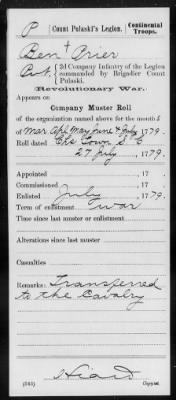 P | Count Pulaski's Legion. | Continental Troops.
Ben+ Prier
Pvt, { 2d Company Infantry of the Legion commanded by Brigadier Count Pulaski.
Revolutionary War.
Appears on
Company Muster Roll
of the organization named above for the month s
of Mar Apl May June & July, 1779.
Roll dated Chs Town S C
27 July, 1779.
Appointed , 17 .
Commissioned , 17 .
Enlisted July , 1779.
Term of enlistment war
Time since last muster or enlistment
Alterations since last muster
Casualties
Remarks: Transferred
to the Cavalry
(545) Copyist.